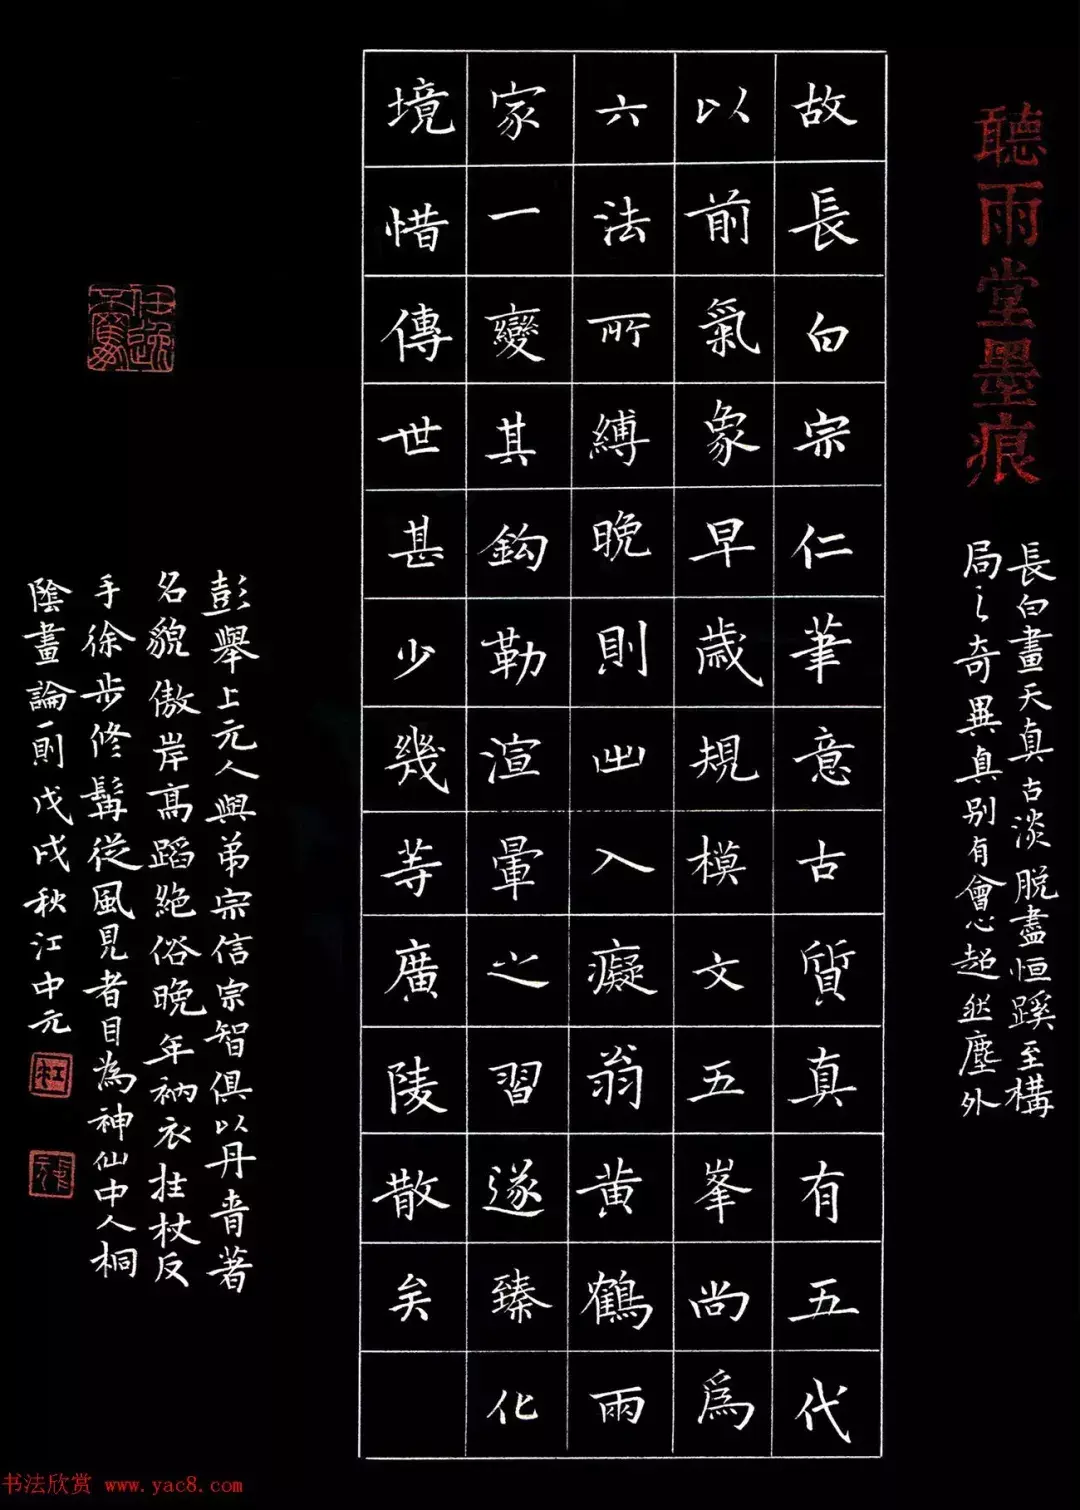 聽雨堂墨痕
長白畫天真古淡脫盡恒蹊至構
局之奇異真別有會心超然塵外
故長白宗仁筆意古質真有五代
以前氣象早歲規模文五峯尚爲
六法所縛晚則出入癡翁黃鶴兩
家一變其鈎勒渲暈之習遂臻化
境惜傳世甚少幾等廣陵散矣
彭舉上元人與弟宗信宗智俱以丹青著
名貌傲岸高蹈絕俗晚年衲衣拄杖反
手徐步修髯從風見者目為神仙中人桐
陰畫論一則戊戌秋江中元
江
书法欣赏 www.yac8.com